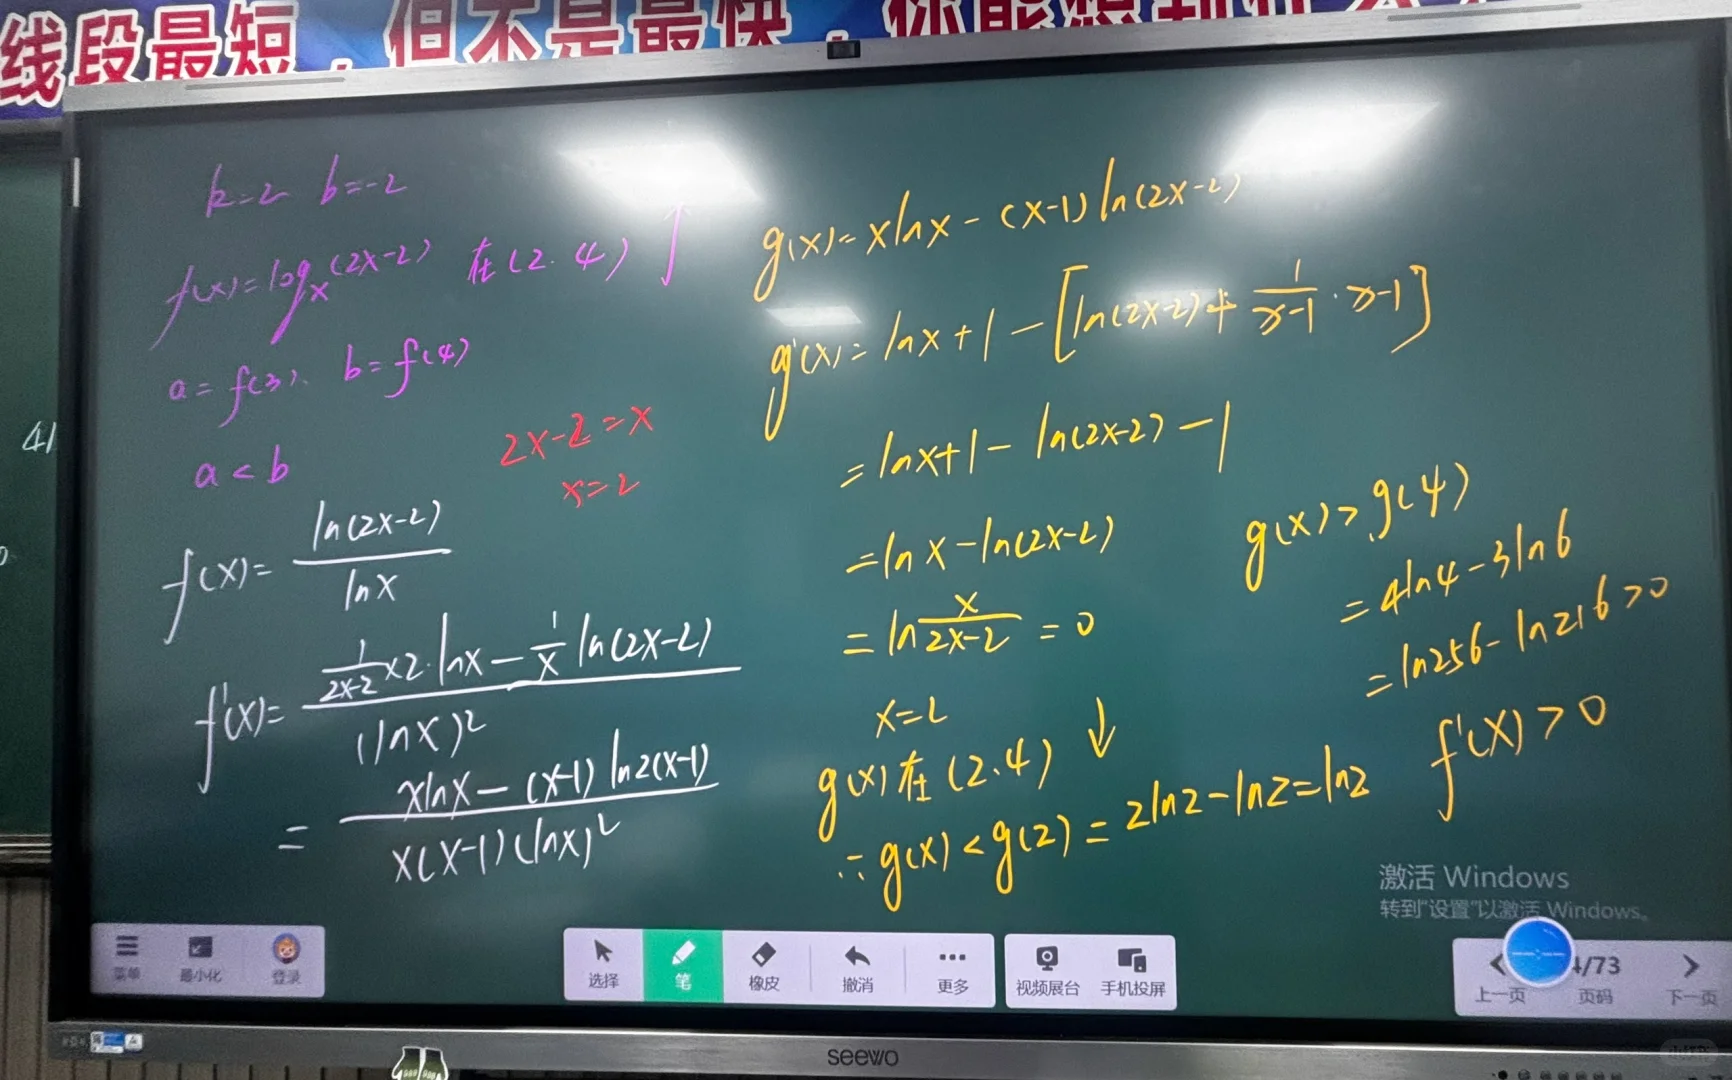 线段最短，但不是最快，你能想到什么
k=2 b=-2
f(x)=log_x(2x-2) 在(2.4)↑
a=f(3). b=f(4)
a<b
2x-2=x
x=2
f(x)=\frac{ln(2x-2)}{lnx}
f'(x)=\frac{\frac{1}{2x-2}×2·lnx-\frac{1}{x}ln(2x-2)}{(lnx)^2}
=\frac{xlnx-(x-1)ln2(x-1)}{x(x-1)(lnx)^2}
g(x)=xlnx-(x-1)ln(2x-2)
g'(x)=lnx+1-[ln(2x-2)+\frac{1}{x-1}·x-1]
=lnx+1-ln(2x-2)-1
=lnx-ln(2x-2)
=ln\frac{x}{2x-2}=0
x=2
g(x)在(2.4)↓
∴g(x)<g(2)=2ln2-ln2=ln2
g(x)>g(4)
=4ln4-3ln6
=ln256-ln216>0
f'(x)>0
41
激活 Windows
转到"设置"以激活 Windows。
菜单 最小化 登录
选择 笔 橡皮 撤消 更多
视频展台 手机投屏
4/73
上一页 页码 下一页
seewo